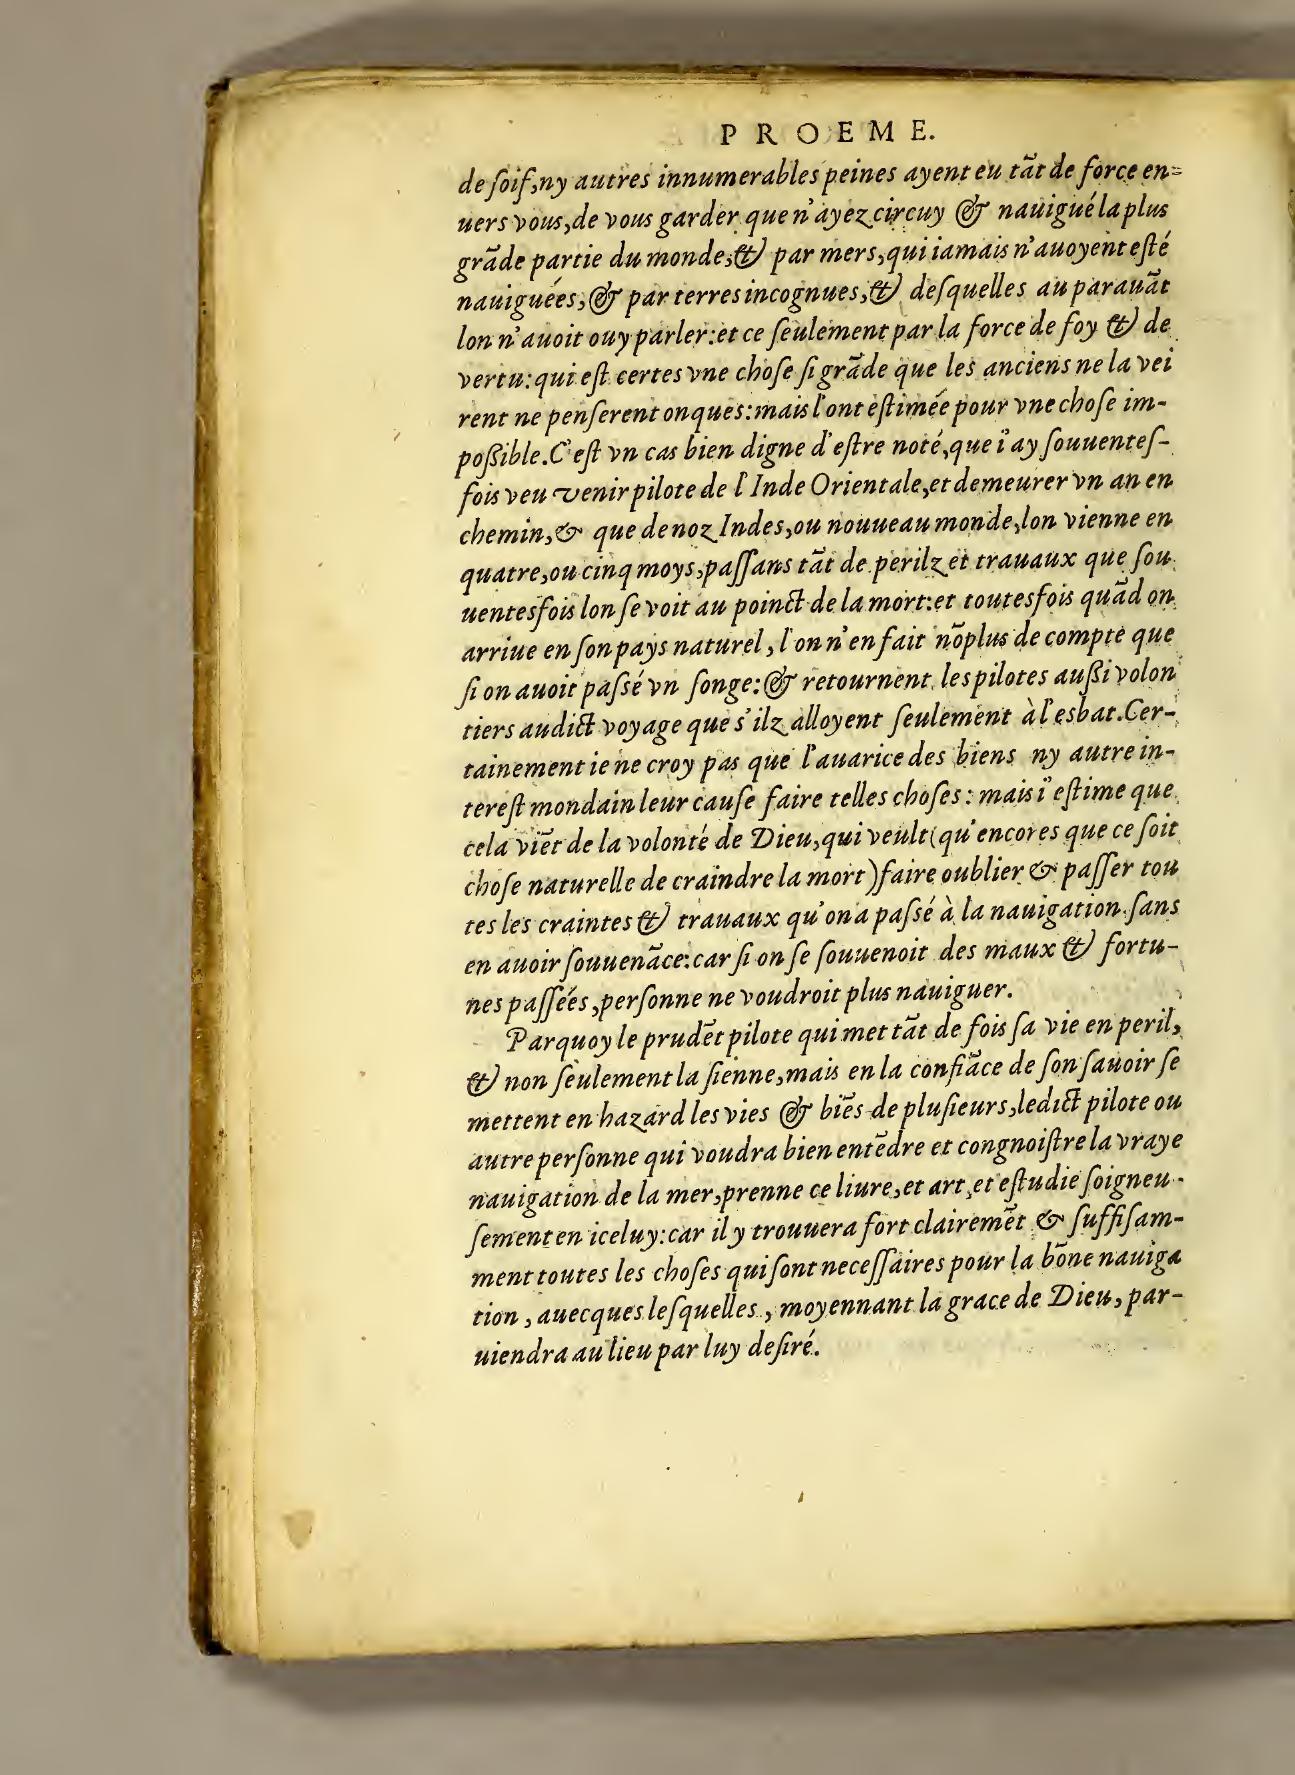 PROEME.
de ſoif, ny autres innumerables peines ayent eu tãt de force en=
uers vous, de vous garder que n'ayez circuy & nauigué la plus
grãde partie du monde, & par mers, qui iamais n'auoyent eſté
nauiguées, & par terres incognues, & deſquelles au parauãt
lon n'auoit ouy parler: et ce ſeulement par la force de foy & de
vertu: qui eſt certes vne choſe ſi grãde que les anciens ne la vei
rent ne penſerent onques: mais l'ont eſtimée pour vne choſe im-
poßible. C'eſt vn cas bien digne d'eſtre noté, que i'ay ſouuenteſ-
fois veu venir pilote de l'Inde Orientale, et demeurer vn an en
chemin, & que de noz Indes, ou nouueau monde, lon vienne en
quatre, ou cinq moys, paſſans tãt de perilz et trauaux que ſou
uentesfois lon ſe voit au poinct de la mort: et toutesfois quãd on
arriue en ſon pays naturel, l'on n'en fait nõplus de compte que
ſi on auoit paſsé vn ſonge: & retournent les pilotes außi volon
tiers audict voyage que s'ilz alloyent ſeulement à l'esbat. Cer-
tainement ie ne croy pas que l'auarice des biens ny autre in-
tereſt mondain leur cauſe faire telles choſes: mais i'eſtime que
cela viẽt de la volonté de Dieu, qui veult (qu'encores que ce ſoit
choſe naturelle de craindre la mort) faire oublier & paſſer tou
tes les craintes & trauaux qu'on a paſsé à la nauigation ſans
en auoir ſouuenãce: car ſi on ſe ſouuenoit des maux & fortu-
nes paſſées, perſonne ne voudroit plus nauiguer.
Parquoy le prudẽt pilote qui met tãt de fois ſa vie en peril,
& non ſeulement la ſienne, mais en la confiãce de ſon ſauoir ſe
mettent en hazard les vies & biẽs de pluſieurs, ledict pilote ou
autre perſonne qui voudra bien entẽdre et congnoiſtre la vraye
nauigation de la mer, prenne ce liure, et art, et eſtudie ſoigneu-
ſement en iceluy: car il y trouuera fort clairemẽt & ſuffiſam-
ment toutes les choſes qui ſont neceſſaires pour la bõne nauiga
tion, auecques leſquelles, moyennant la grace de Dieu, par-
uiendra au lieu par luy deſiré.